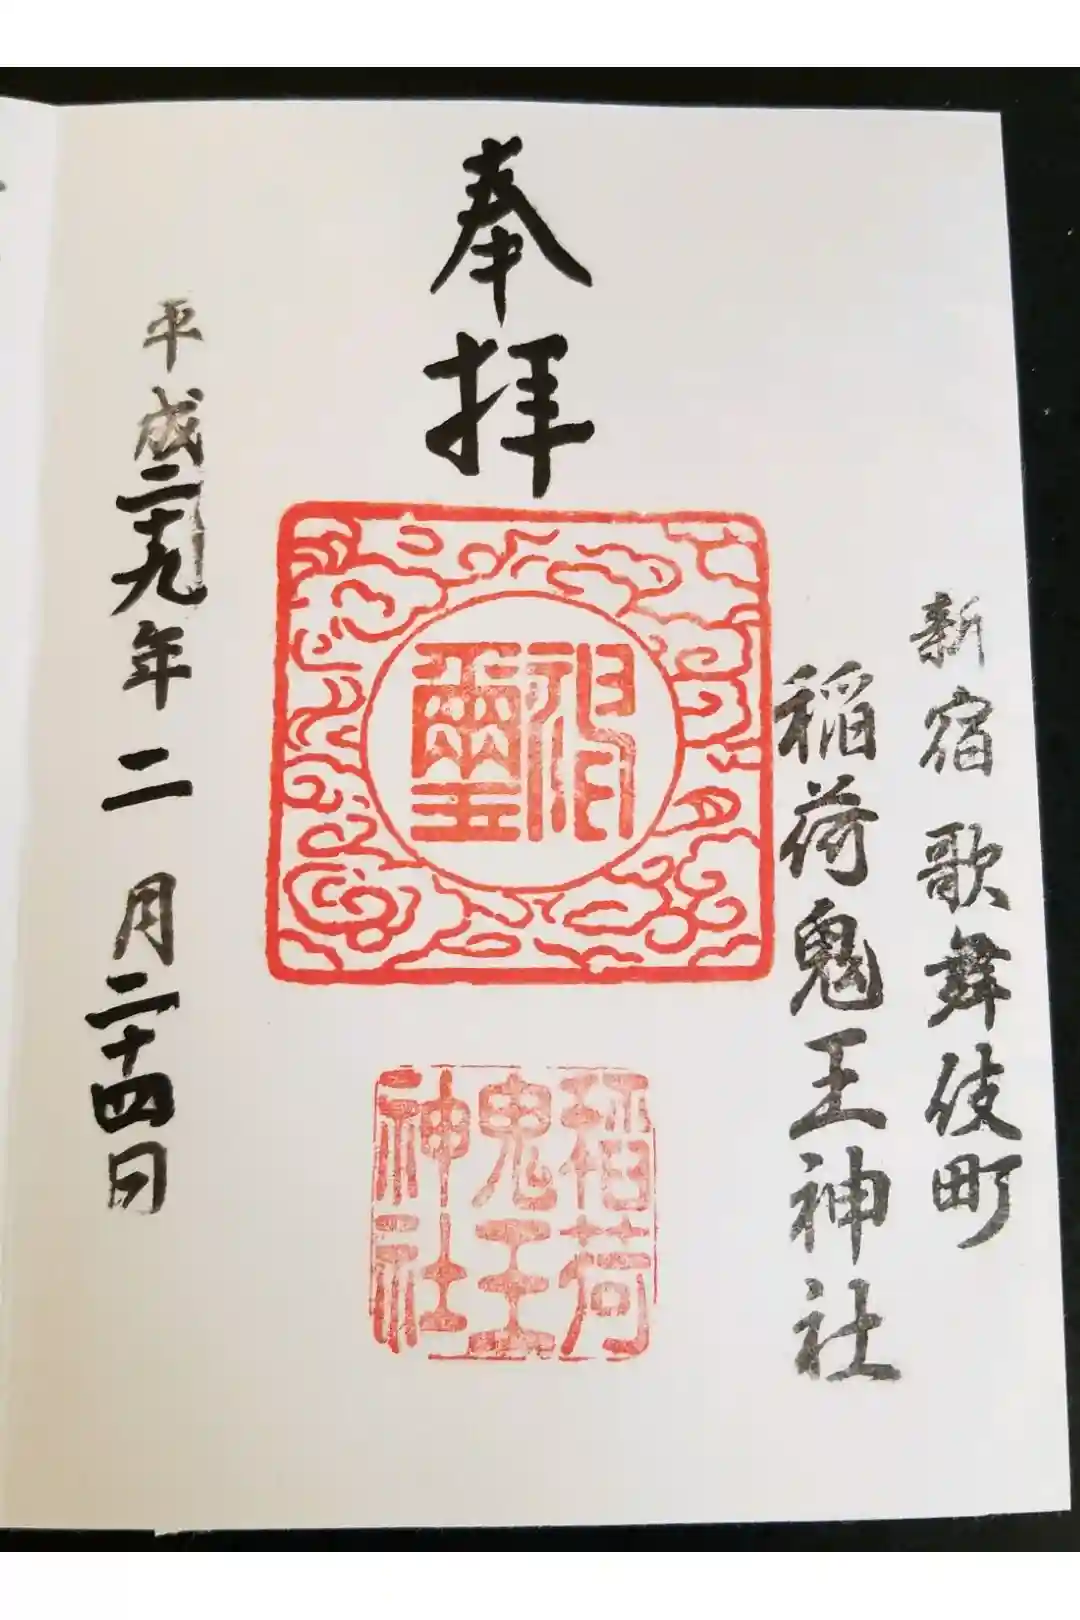 新宿歌舞伎町
稲荷鬼王神社
奉拝
神璽
稲荷
鬼王
神社
平成二十九年二月二十四日